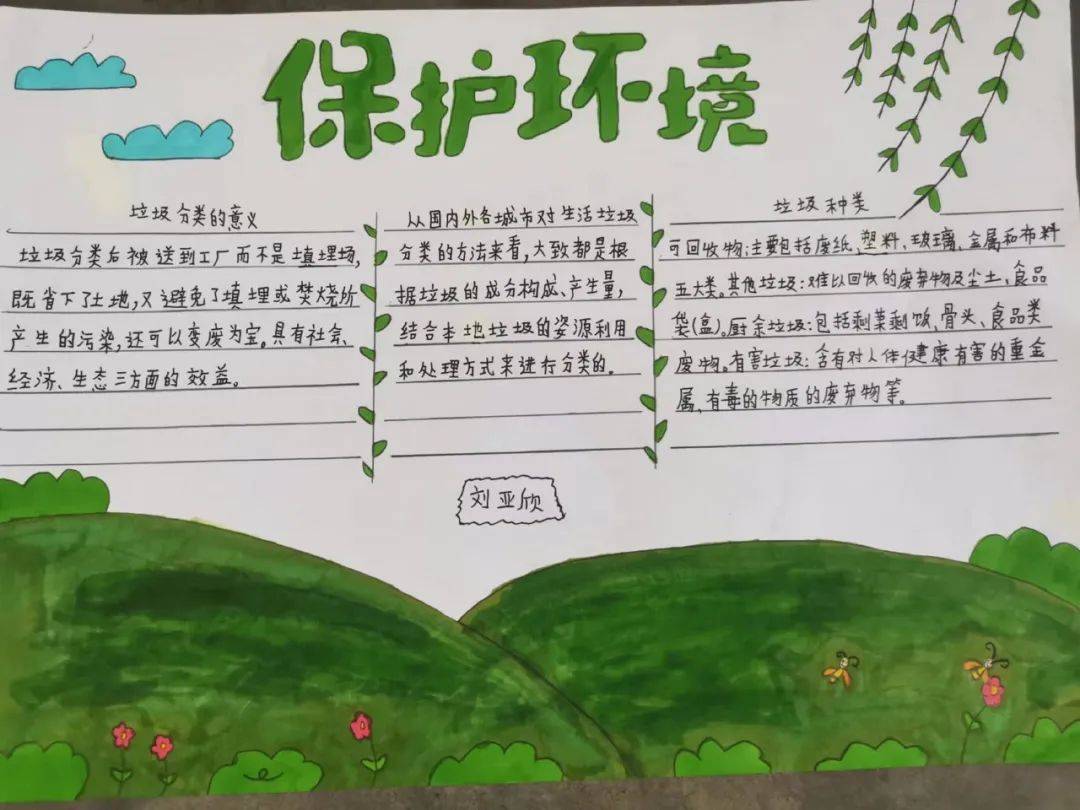 保护环境
垃圾分类的意义
垃圾分类后被送到工厂而不是填埋场,
既省下了土地,又避免了填埋或焚烧所
产生的污染,还可以变废为宝。具有社会、
经济、生态三方面的效益。
从国内外各城市对生活垃圾
分类的方法来看,大致都是根
据垃圾的成分构成、产生量,
结合本地垃圾的资源利用
和处理方式来进行分类的。
垃圾种类
可回收物:主要包括废纸、塑料、玻璃、金属和布料
五大类。其他垃圾:难以回收的废弃物及尘土、食品
袋(盒)。厨余垃圾:包括剩菜剩饭、骨头、食品类
废物。有害垃圾:含有对人体健康有害的重金
属、有毒的物质的废弃物等。
刘亚欣